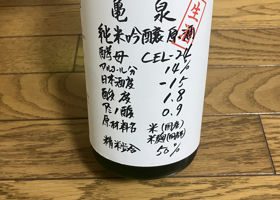 亀泉
生
純米吟醸原酒
酵母 CEL-24
アルコール分 14%
日本酒度 -15
酸度 1.8
アミノ酸 0.9
原材料名 米(国産)
米麹(国産米)
精米歩合 50%